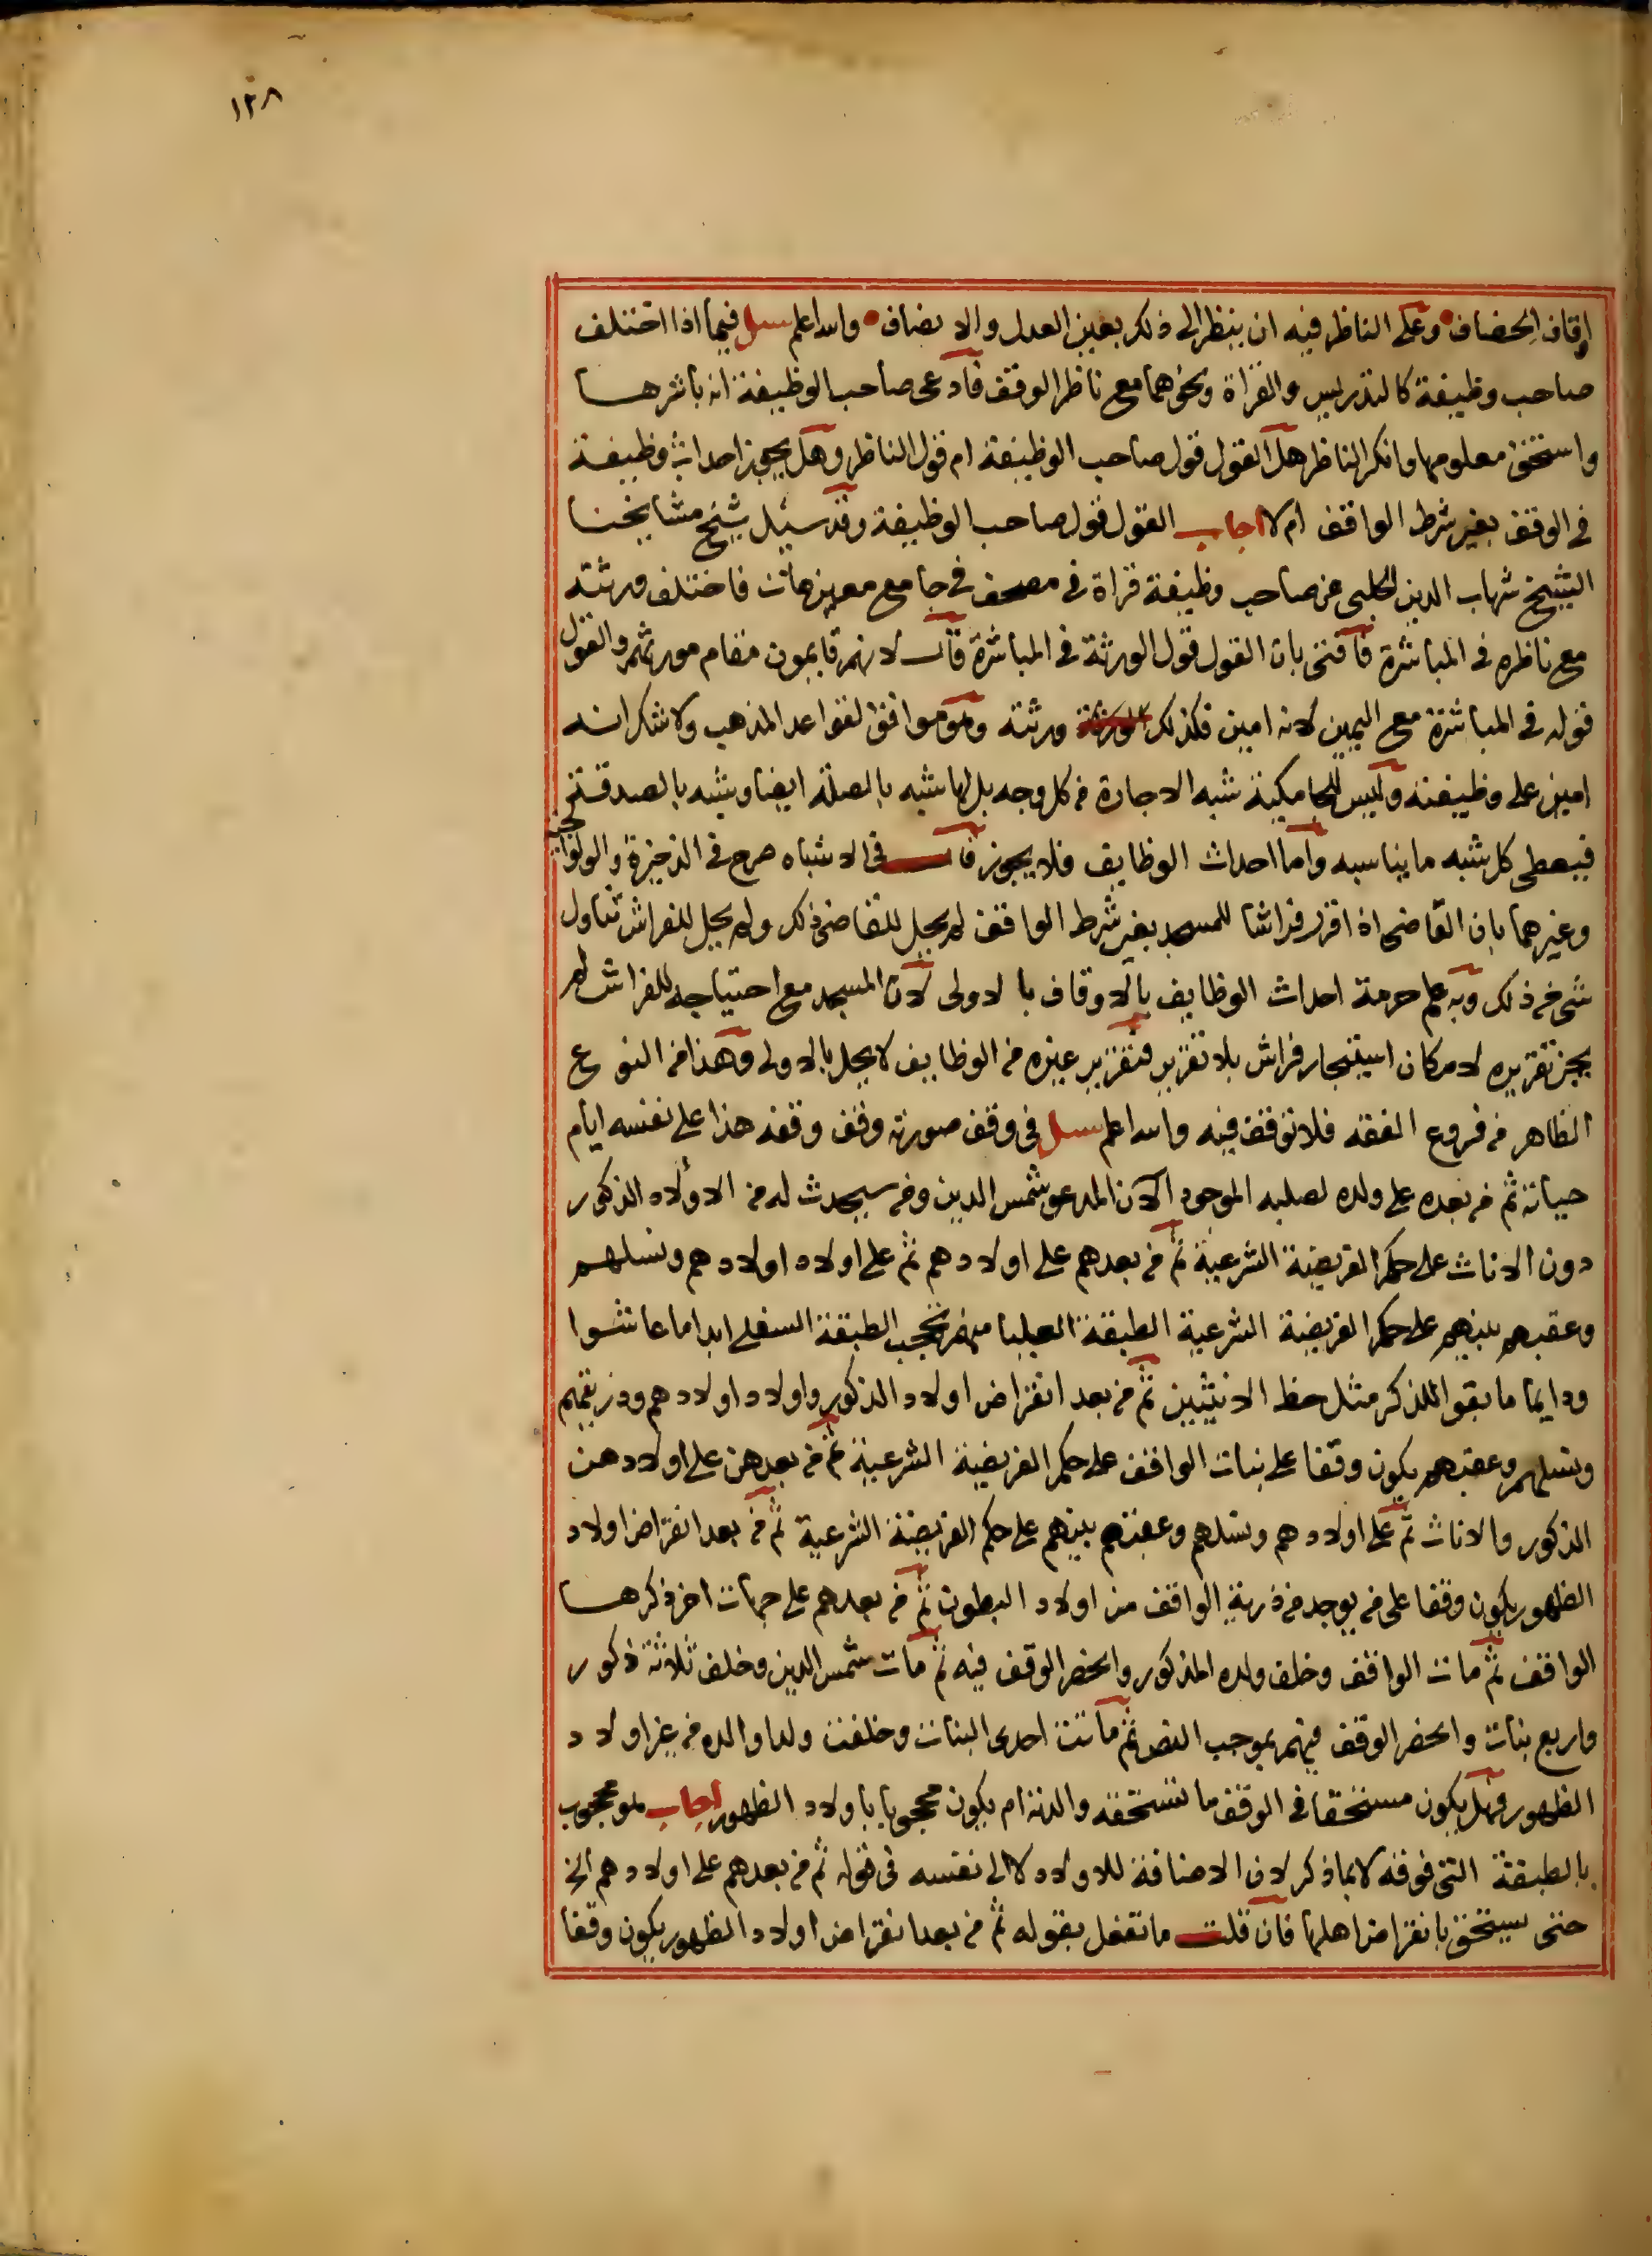 ١٢٨
اوقاف الخصاف وعلى الناظر فيه ان ينظر الى ذلك بعين العدل والانصاف والله اعلم سئل فيما اذا اختلف
صاحب وظيفة كالتدريس والقراة ونحوهما مع ناظر الوقف فادعى صاحب الوظيفة انه باشرها
واستحق معلومها وانكر الناظر هل القول قول صاحب الوظيفة ام قول الناظر وهل يجوز احداث وظيفة
في الوقف بغير شرط الواقف ام لا اجاب القول قول صاحب الوظيفة وقد سئيل شيخ مشايخنا
الشيخ شهاب الدين الحلبي عن صاحب وظيفة قراة في مصحف في جامع معين مات فاختلف ورثته
مع ناظره في المباشرة فافتى بان القول قول الورثة في المباشرة قال لانهم قايمون مقام مورثهم والقول
قوله في المباشرة مع اليمين لانه امين فكذلك ورثته وهو موافق لقواعد المذهب ولا شك انه
امين على وظيفته وليس للجامكية شبه الاجارة من كل وجه بل لها شبه بالصلة ايضا وشبه بالصدقة
فيعطى كل شبه ما يناسبه واما احداث الوظايف فلا يجوز قال في الاشباه صرح في الذخيرة والولوالجية
وغيرهما بان القاضي اذا قرر فراشا للمسجد بغير شرط الواقف لم يحل للقاضي ذلك ولم يحل للفراش تناول
شي من ذلك وبه علم حرمة احداث الوظايف بالاوقاف بالاولى لان المسجد مع احتياجه للفراش لم
يجز تقريره لامكان استيجار فراش بلا تقرير فتقرير غيره من الوظايف لا يحل بالاولى وهذا من النوع
الظاهر من فروع الفقه فلا توقف فيه والله اعلم سئل في وقف صورته وقف وقفه هذا على نفسه ايام
حياته ثم من بعده على ولده لصلبه الموجود الآن المدعو شمس الدين ومن سيحدث له من الاولاد الذكور
دون الاناث على حكم الفريضة الشرعية ثم من بعدهم على اولادهم ثم على اولاد اولادهم ونسلهم
وعقبهم بينهم على حكم الفريضة الشرعية الطبقة العليا منهم تحجب الطبقة السفلى ابدا ما عاشوا
ودايما ما بقوا للذكر مثل حظ الانثيين ثم من بعد انقراض اولاد الذكور واولاد اولادهم وذريتهم
ونسلهم وعقبهم يكون وقفا على بنات الواقف على حكم الفريضة الشرعية ثم من بعدهن على اولادهن
الذكور والاناث ثم على اولادهم ونسلهم وعقبهم بينهم على حكم الفريضة الشرعية ثم من بعد انقراض اولاد
الظهور يكون وقفا على من يوجد من ذرية الواقف من اولاد البطون ثم من بعدهم على جهات اخر ذكرها
الواقف ثم مات الواقف وخلف ولده المذكور وانحصر الوقف فيه ثم مات شمس الدين وخلف ثلاثة ذكور
واربع بنات وانحصر الوقف فيهم بموجب النص ثم ماتت احدى البنات وخلفت ولدا والده من غير اولاد
الظهور فهل يكون مستحقا في الوقف ما تستحقه والدته ام يكون محجوبا باولاد الظهور اجاب هو محجوب
بالطبقة التي فوقه لا بما ذكر لان الاضافة للاولاد لا الى نفسه في قوله ثم من بعدهم على اولادهم الخ
حتى يستحق بانقراض اهلها فان قلت ما تفعل بقوله ثم من بعد انقراض اولاد الظهور يكون وقفا